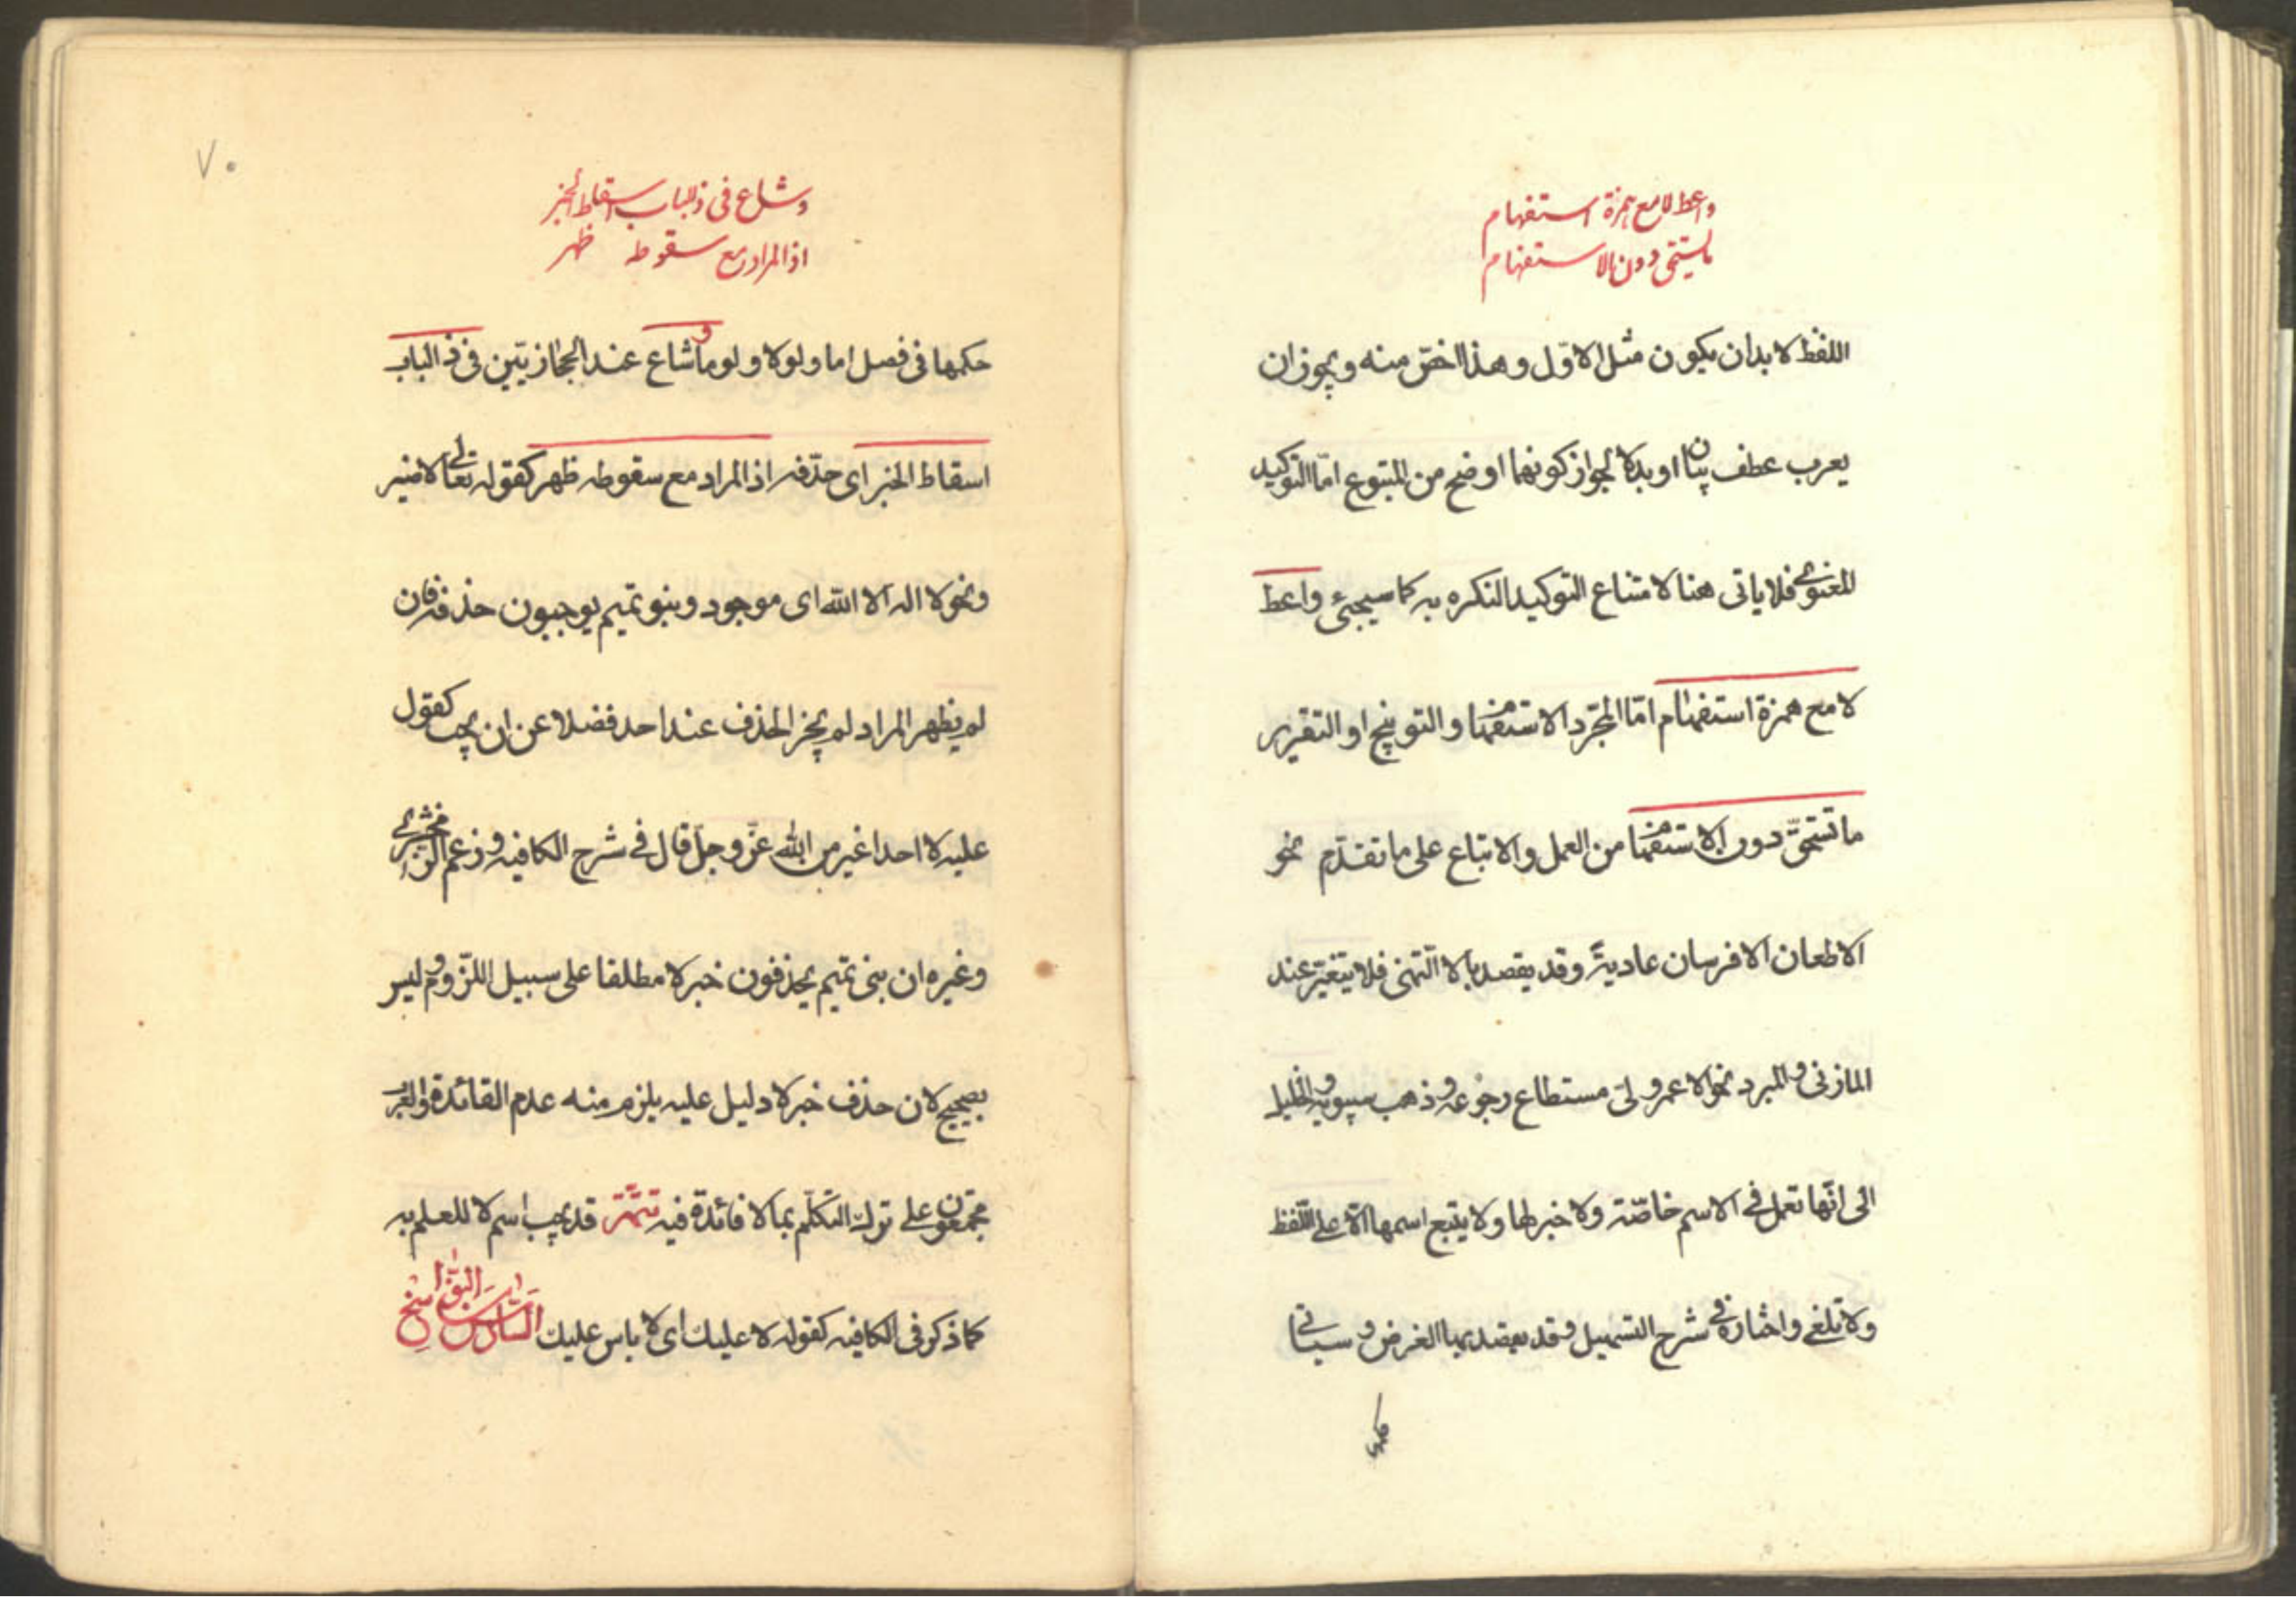 واعط لا مع همزة استفهام
ما تستحق دون الاستفهام
اللفظ لا بد ان يكون مثل الاوّل وهذا اخصّ منه ويجوز ان
يعرب عطف بيان او بدلا لجواز كونهما اوضح من المتبوع امّا التوكيد
المعنوى فلا ياتى هنا لامتناع التوكيد النكره به كما سيجىء واعط
لا مع همزة استفهام امّا المجّرد الاستفهام والتوبيخ او التقرير
ما تستحقّ دون الاستفهام من العمل والاتباع على ما تقدّم نحو
الا طعان الا فرسان عاديةً وقد يقصد بالا التّمنى فلا يتغيّر عند
المازنى والمبرد نحو الا عمر ولىّ مستطاع رجوعه وذهب سيبويه والخليل
الى انّها تعمل فى الاسم خاصّة ولا خبر لها ولا يتبع اسمها الّا على اللّفظ
ولا تلغى واختاره فى شرح التسهيل وقد يقصد بها الغرض وسياتى
حكمها
٧٠
وشاع فى ذا الباب اسقاط الخبر
اذا المراد مع سقوطه ظهر
حكمها فى فصل اما ولولا ولوما وشاع عند الحجازيّين فى ذا الباب
اسقاط الخبر اى حذفه اذا المراد مع سقوطه ظهر كقوله تعالى لا ضير
ونحو لا اله الا الله اى موجود وبنو تميم يوجبون حذفه فان
لم يظهر المراد لم يجز الحذف عند احد فضلا عن ان يجب كقول
عليه لا احد اغير من الله عزّ وجلّ قال فى شرح الكافيه وزعم الزمخشرى
وغيره ان بنى تميم يحذفون خبر لا مطلقا على سبيل اللّزوم وليس
بصحيح لان حذف خبر لا دليل عليه يلزم منه عدم الفائدة والعرب
مجمعون على ترك التكلّم بما لا فائدة فيه تتمّة قد يجب اسم لا للعلم به
كما ذكر فى الكافيه كقوله لا عليك اى لا باس عليك السّادس من النواسخ